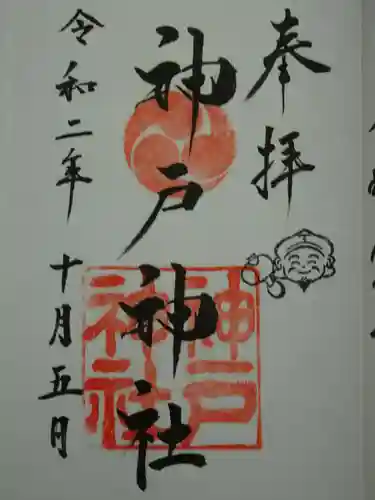 奉拝
神戸神社
神戸
神社
令和二年
十月五月